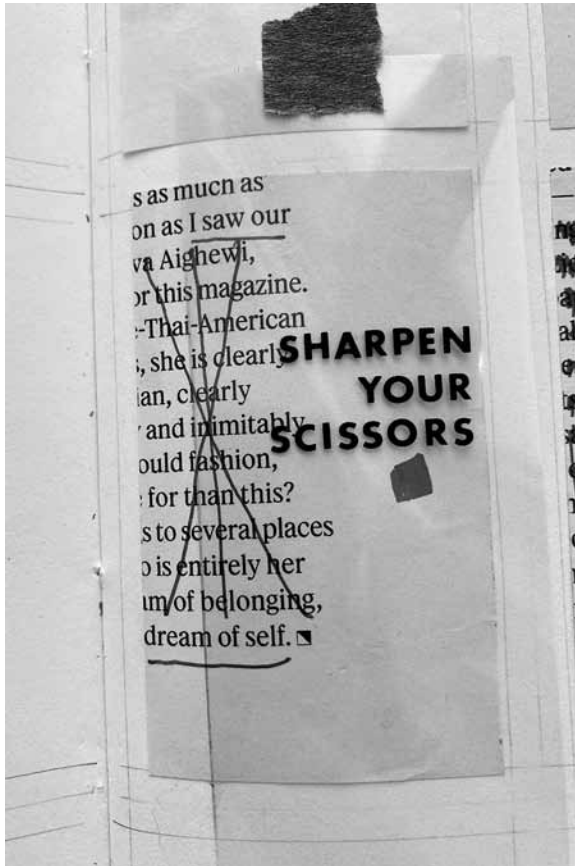 s as much as
on as I saw our
va Aighewi,
or this magazine.
-Thai-American
s, she is clearly
ian, clearly
and inimitably
ould fashion,
for than this?
s to several places
o is entirely her
am of belonging,
dream of self.
SHARPEN
YOUR
SCISSORS